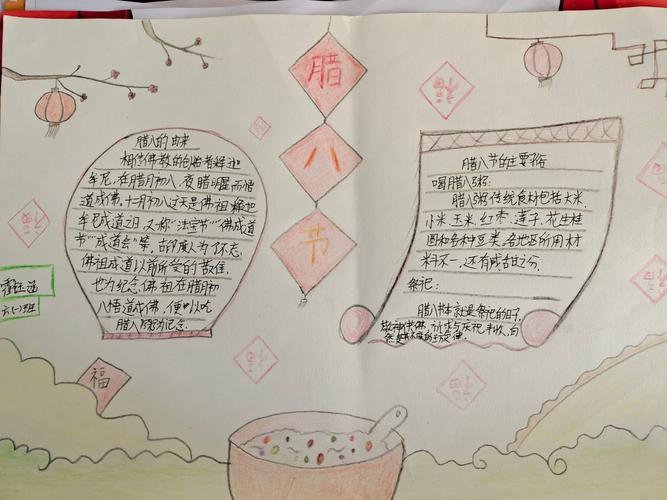 腊
八
节
腊八的由来
相传佛教的创始者释迦
牟尼，在腊月初八，夜睹明星而悟
道成佛，十二月初八这天是佛祖释迦
牟尼成道之日，又称“法宝节”“佛成道
节”“成道会”等，古印度人为了不忘
佛祖成道以前所受的苦难，
也为纪念佛祖在腊月初
八悟道成佛，便以吃
腊八粥为纪念。
腊八节的主要习俗
喝腊八粥：
腊八粥传统食材包括大米、
小米、玉米、红枣、莲子、花生、桂
圆和各种豆类，各地区所用材
料不一，还有咸甜之分。
祭祀：
腊八节本就是祭祀的日子，
福
福
福
福
福
福
六（一）班